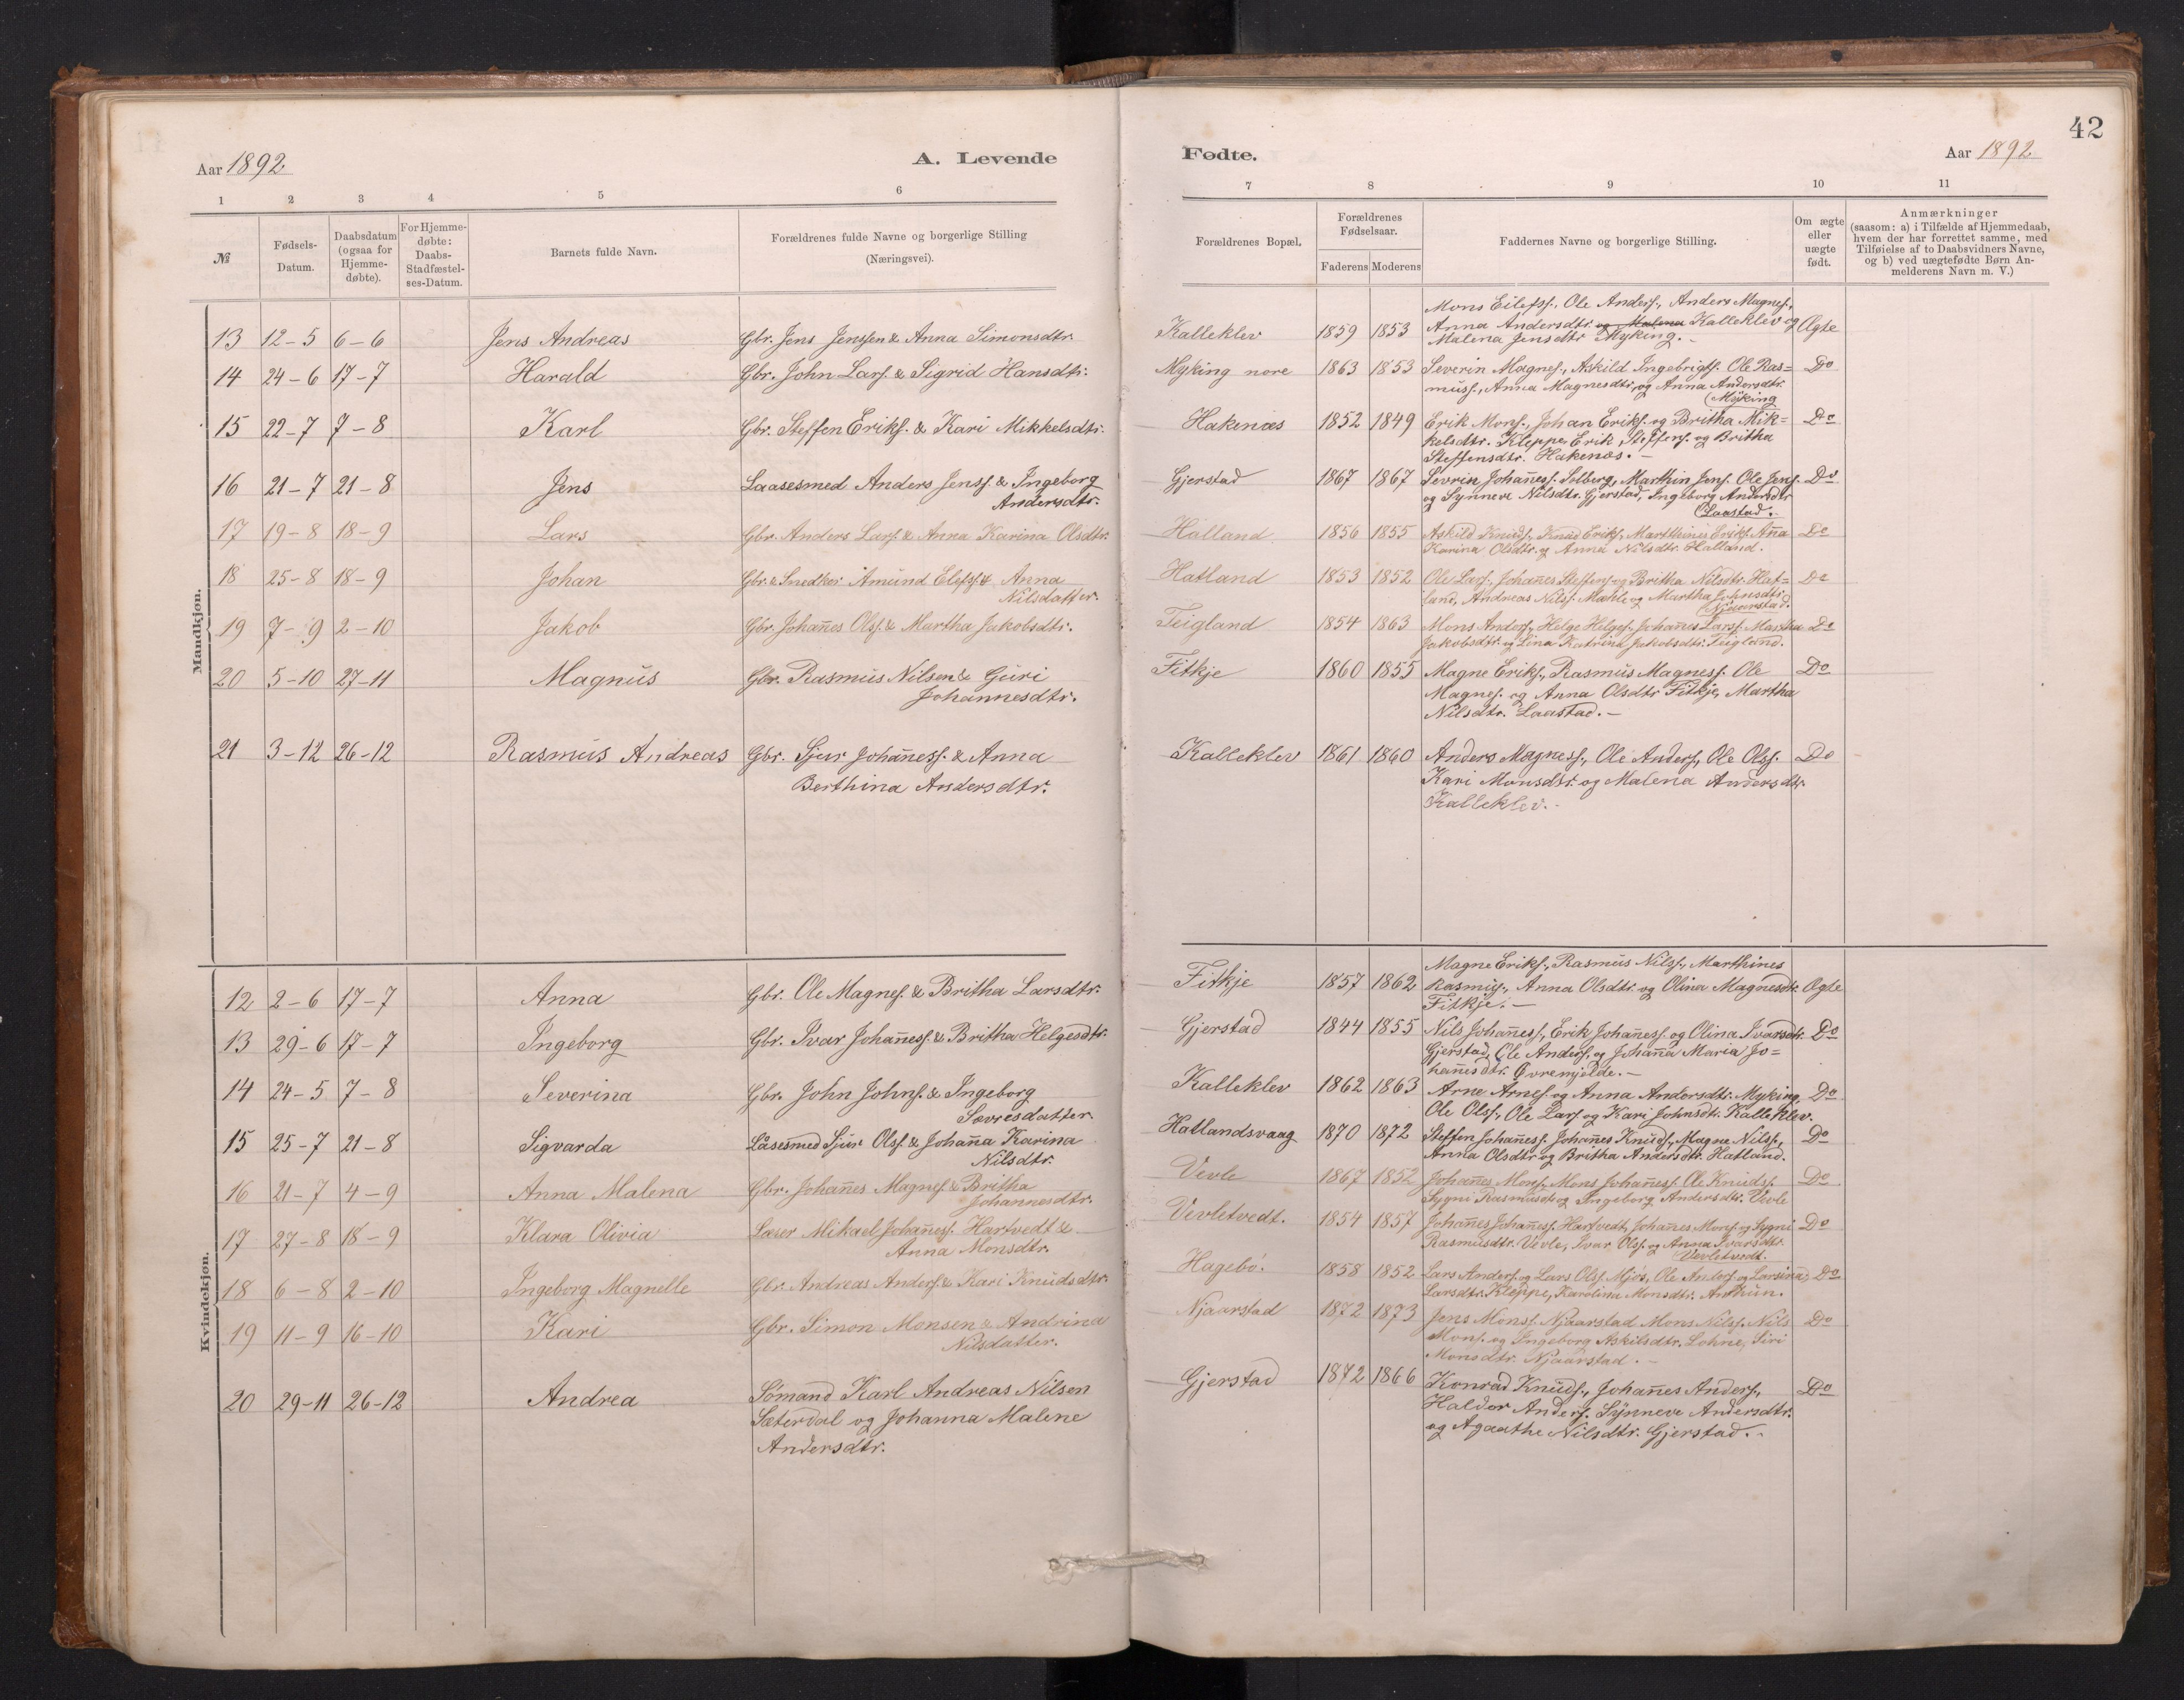 Aar 1892
A. Levende
1 2 3 4 5 6
№ Fødsels-Datum. Daabsdatum (ogsaa for Hjemmedøbte). For Hjemmedøbte: Daabs-Stadfæstelses-Datum. Barnets fulde Navn. Forældrenes fulde Navne og borgerlige Stilling (Næringsvei).
Mandkjøn.
13 12-5 6-6 Jens Andreas Gbr. Jens Jenssen & Anna Simonsdtr.
14 24-6 17-7 Harald Gbr. John Lars. & Sigrid Hansdtr.
15 22-7 7-8 Karl Gbr. Steffen Eriks. & Kari Mikkelsdtr.
16 21-7 21-8 Jens Laasesmed Anders Jenss. & Ingeborg
Andersdtr.
17 19-8 18-9 Lars Gbr. Anders Lars. & Anna Karina Olsdtr.
18 25-8 18-9 Johan Gbr. & Snedker Amund Elefss. & Anna
Nilsdatter.
19 7-9 2-10 Jakob Gbr. Johañes Olss. & Martha Jakobsdtr.
20 5-10 27-11 Magnus Gbr. Rasmus Nilsen & Guri
Johannesdtr.
21 3-12 26-12 Rasmus Andreas Gbr. Sjur Johañess. & Anna
Berthina Andersdtr.
Kvindekjøn.
12 2-6 17-7 Anna Gbr. Ole Magnes. & Britha Larsdtr.
13 29-6 17-7 Ingeborg Gbr. Ivar Johañess. & Britha Helgesdtr.
14 24-5 7-8 Severina Gbr. John Johns. & Ingeborg
Sævresdatter
15 25-7 21-8 Sigvarda Låsesmed Sjur Olss. & Johaña Karina
Nilsdtr.
16 21-7 4-9 Anna Malena Gbr. Johañes Magnes. & Britha
Johannesdtr.
17 27-8 18-9 Klara Olivia Lærer Mikael Johañess. Hartvedt &
Anna Monsdtr.
18 6-8 2-10 Ingeborg Magnelle Gbr. Andreas Anders. & Kari Knudsdtr.
19 11-9 16-10 Kari Gbr. Simon Monsen & Andrina
Nilsdatter.
20 29-11 26-12 Andrea Sømand Karl Andreas Nilsen
Sæterdal og Johanna Malene
Andersdtr.
42
Fødte.
Aar 1892
7 8 9 10 11
Forældrenes Bopæl. Forældrenes Fødselsaar. Faderens Moderens Faddernes Navne og borgerlige Stilling. Om ægte eller uægte født. Anmærkninger (saasom: a) i Tilfælde af Hjemmedaab, hvem der har forrettet samme, med Tilføielse af to Daabsvidners Navne, og b) ved uægtefødte Børn Anmelderens Navn m. V.)
Mons Eilefss., Ole Anders., Anders Magnes.,
Kalleklev 1859 1853 Anna Andersdtr. og Malena Kalleklev og Ægte
Malena Jensdtr Myking.
Myking nore 1863 1853 Severin Magnes., Askild Ingebrigts. Ole Ras= Do
muss., Anna Magnesdtr. og Anna Andersdtr.
Myking
Hakenæs 1852 1849 Erik Mons., Johan Eriks. og Britha Mik= Do
kelsdtr. Kleppe, Erik Steffens. og Britha
Steffensdtr. Hakenæs.
Gjerstad 1867 1867 Sevrin Johañess. Solberg, Marthin Jens. Ole Jens. Do
og Synneve Nilsdtr. Gjerstad, Ingeborg Andersdtr
Laastad.
Halland 1856 1855 Askild Knuds., Knud Eriks., Marthines Eriks. Aña Do
Karina Olsdtr. og Anna Nilsdtr. Halland.
Hatland 1853 1852 Ole Lars., Johañes Steffens. og Britha Nilsdtr. Hat= Do
land, Andreas Nilss. Mæhle og Martha Johnsdtr.
Njaarstad.
Teigland 1854 1863 Mons Anders., Helge Helges. Johañes Larss. Martha Do
Jakobsdtr. og Lina Katrina Jakobsdtr. Teigland.
Fitkje 1860 1855 Magne Eriks., Rasmus Magness. Ole Do
Magnes. og Anna Olsdtr Fitkje, Martha
Nilsdtr. Laastad.
Kalleklev 1861 1860 Anders Magness., Ole Anders., Ole Olss. Do
Kari Monsdtr. og Malena Andersdtr.
Kalleklev.
Magne Eriks., Rasmus Nilss., Marthines
Fitkje 1857 1862 Rasmus., Anna Olsdtr. og Olina Magnesdtr. Ægte
Fitkje.
Gjerstad 1844 1855 Nils Johañess., Erik Johañess. og Olina Ivarsdtr. Do
Gjerstad, Ole Anders. og Johaña Maria Jo=
hañesdtr. Øvremjelde.
Kalleklev 1862 1863 Arne Arnes. og Anna Andersdtr. Myking, Do
Ole Olss., Ole Lars. og Kari Johnsdtr. Kalleklev.
Hatlandsvaag 1870 1872 Steffen Johañess. Johañes Knuds., Magne Nilss., Do
Anna Olsdtr og Britha Andersdtr. Hatland.
Vevle 1867 1852 Johañes Mons., Mons Johañess. Ole Knuds. Do
Sygni Rasmusd. og Ingeborg Andersdtr. Vevle
Vevletvedt. 1854 1857 Johañes Johañess. Hartvedt, Johañes Mons. og Sygni Do
Rasmusdtr. Vevle, Ivar Olss. og Anna Ivarsdtr.
Vevletvedt.
Hagebø. 1858 1852 Lars Anders. og Lars Olss. Mjøs, Ole Anders. og Larsina Do
Larsdtr. Kleppe, Karolina Monsdtr.
Njaarstad 1872 1873 Jens Monss. Njaarstad Mons Nilss. Nils Do
Mons. og Ingeborg Askilsdtr. Lohne, Siri
Monsdtr. Njaarstad.
Gjerstad 1872 1866 Konrad Knuds., Johañes Anders., Do
Haldor Anders. Synneve Andersdtr.
og Agaathe Nilsdtr. Gjerstad.